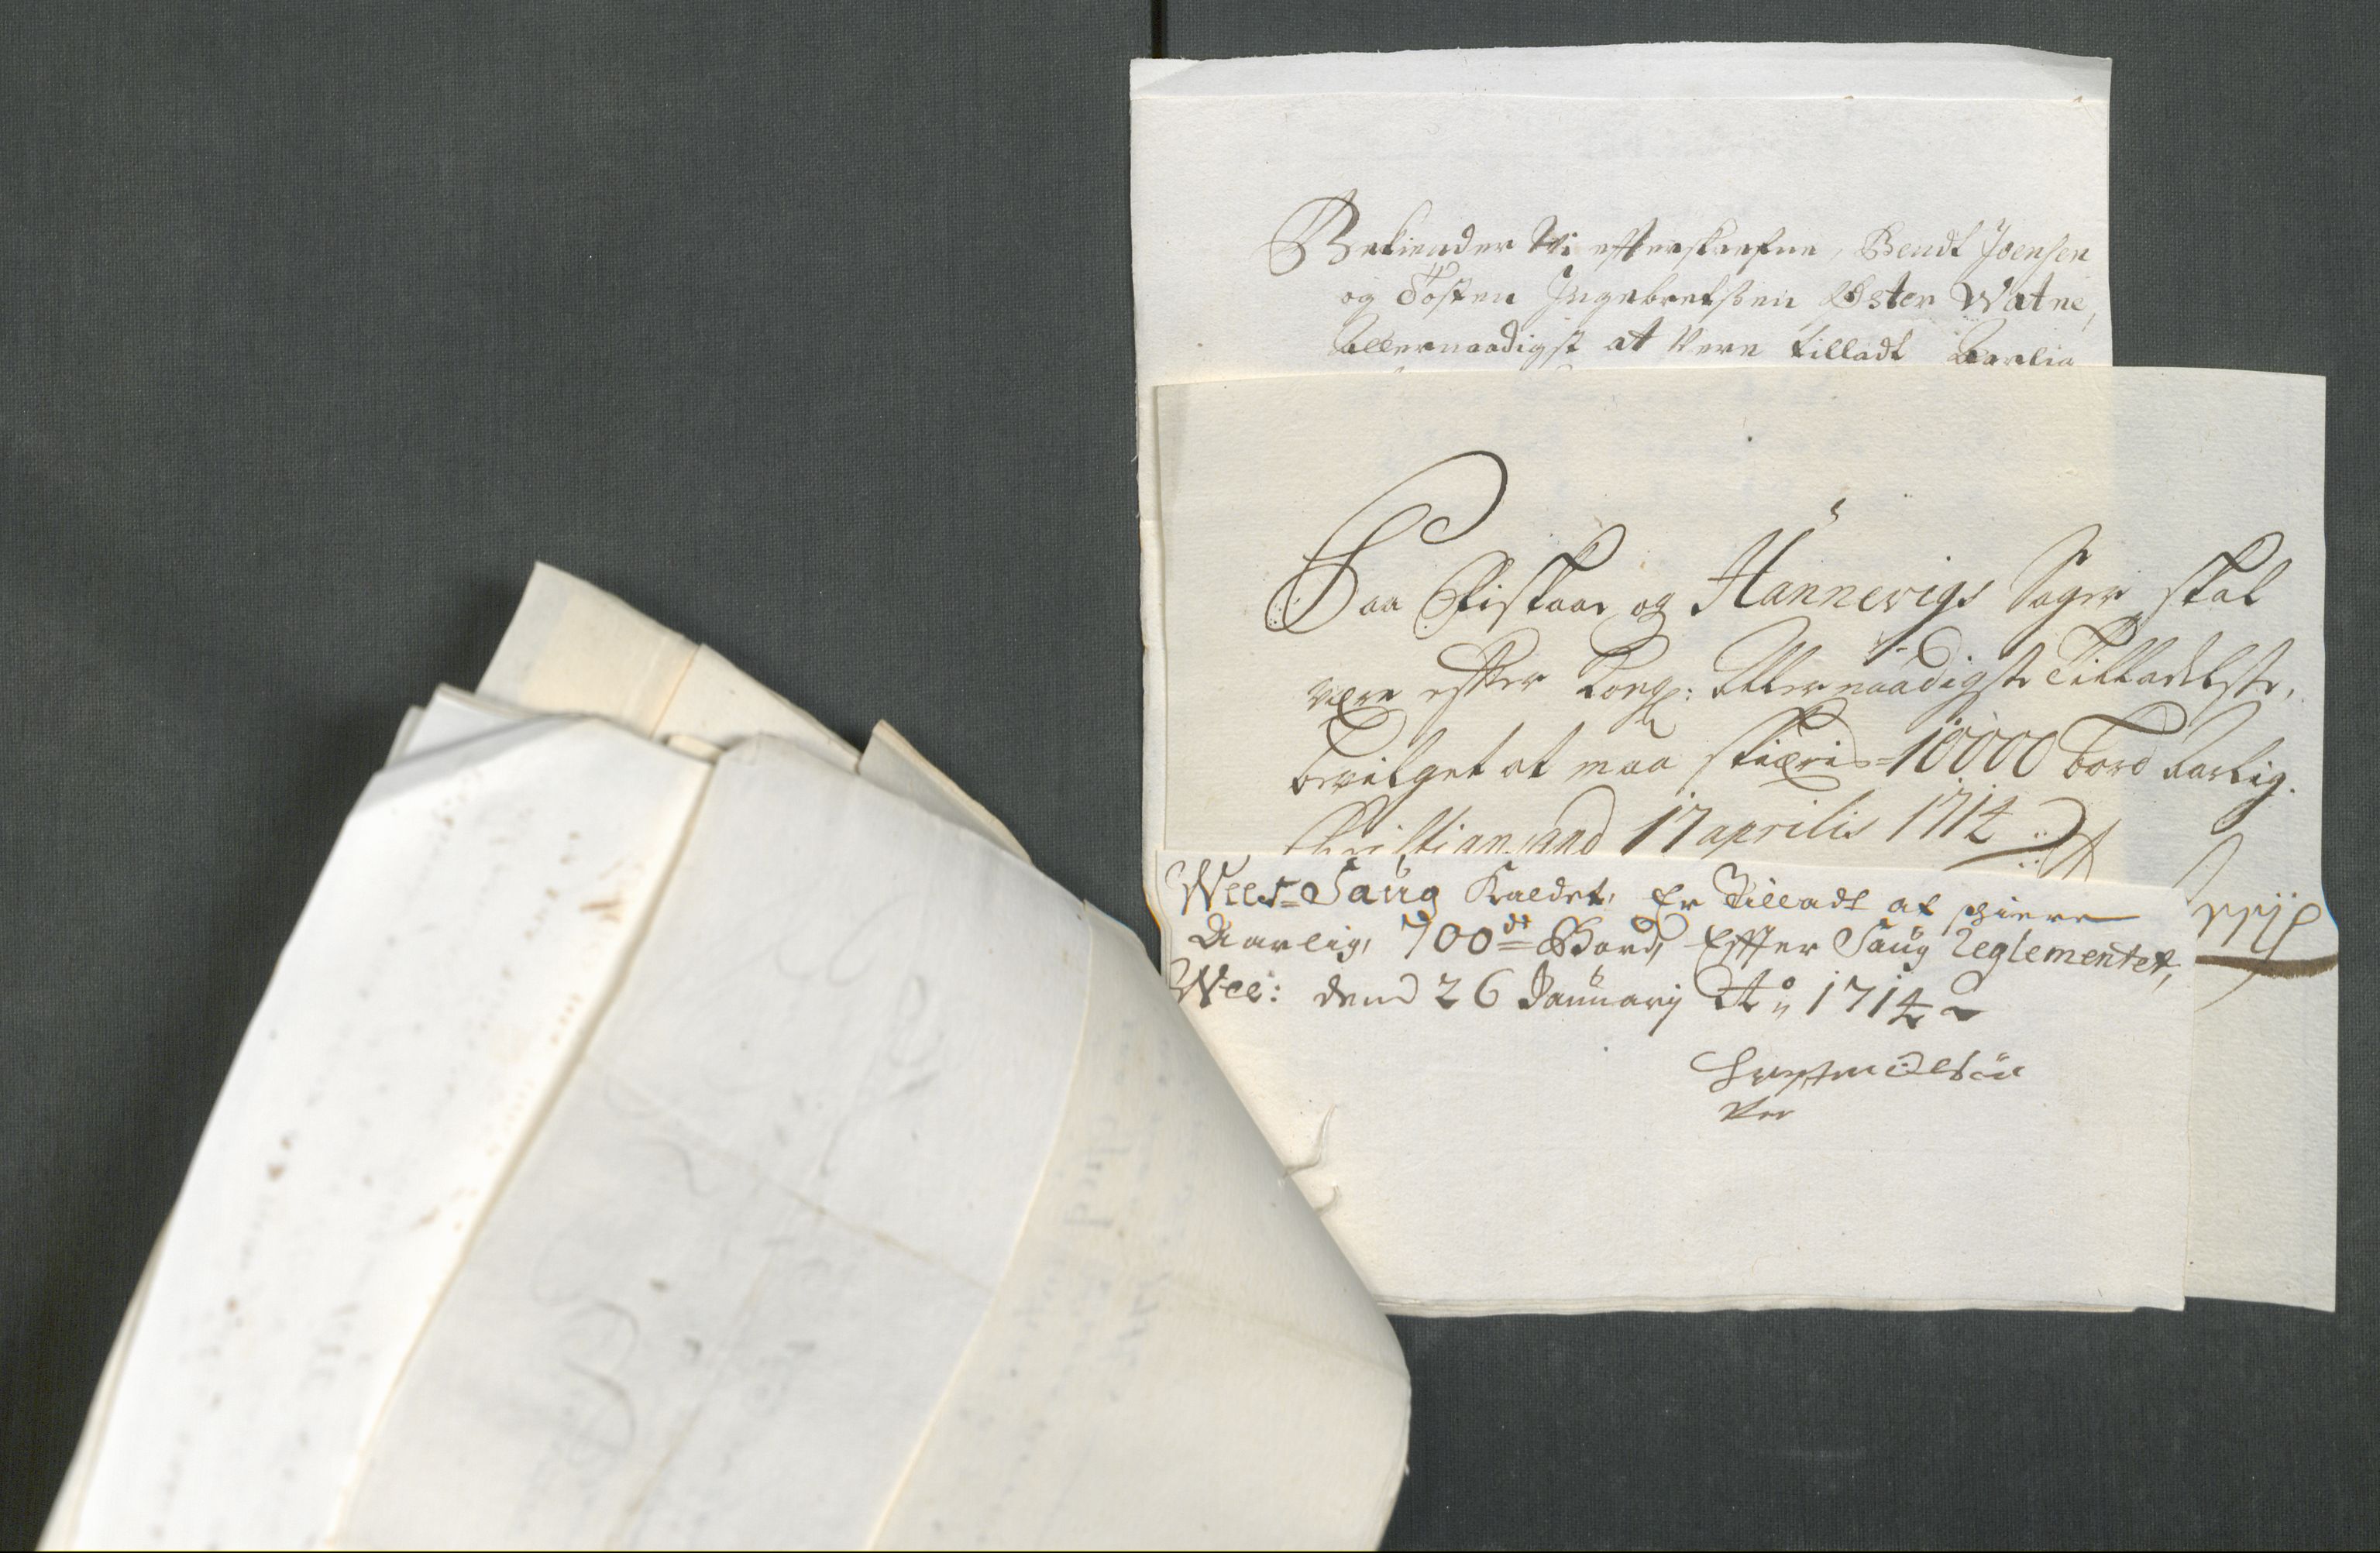 Bekiender Vi efterskrefne, Bendt Joensen
og Tosten Ingebretsen Øster Watne,
Allernaadigst at Vere tilladt Aarlig
Paa Fiskaae og Hannevigs Sager skal
være efter Kongl: Allernaadigste Tilladelse,
bevilget at maa skiæris 10000 bord Aarlig.
Christiansand 17 aprilis 1714
Wee-Saug Kaldet, Er Tilladt at schiere
Aarlig, 700de Bord, Effter Saug Reglementet,
Wee: dend 26 January Ao 1714